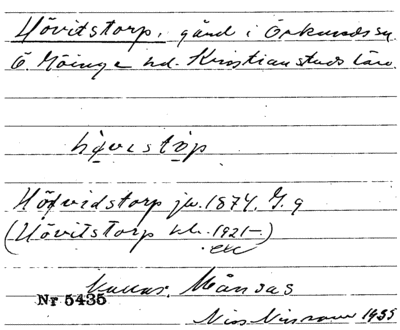 Hövitstorp, gård i Örkeneds sn
Ö. Göinge hd. Kristianstads län
höves tåp
Höfvidstorp jb. 1874, G. g
(Hövitstorp kb. 1921–)
etc
kallas: Månsas
Nr 5435
Nils Nilsson 1935